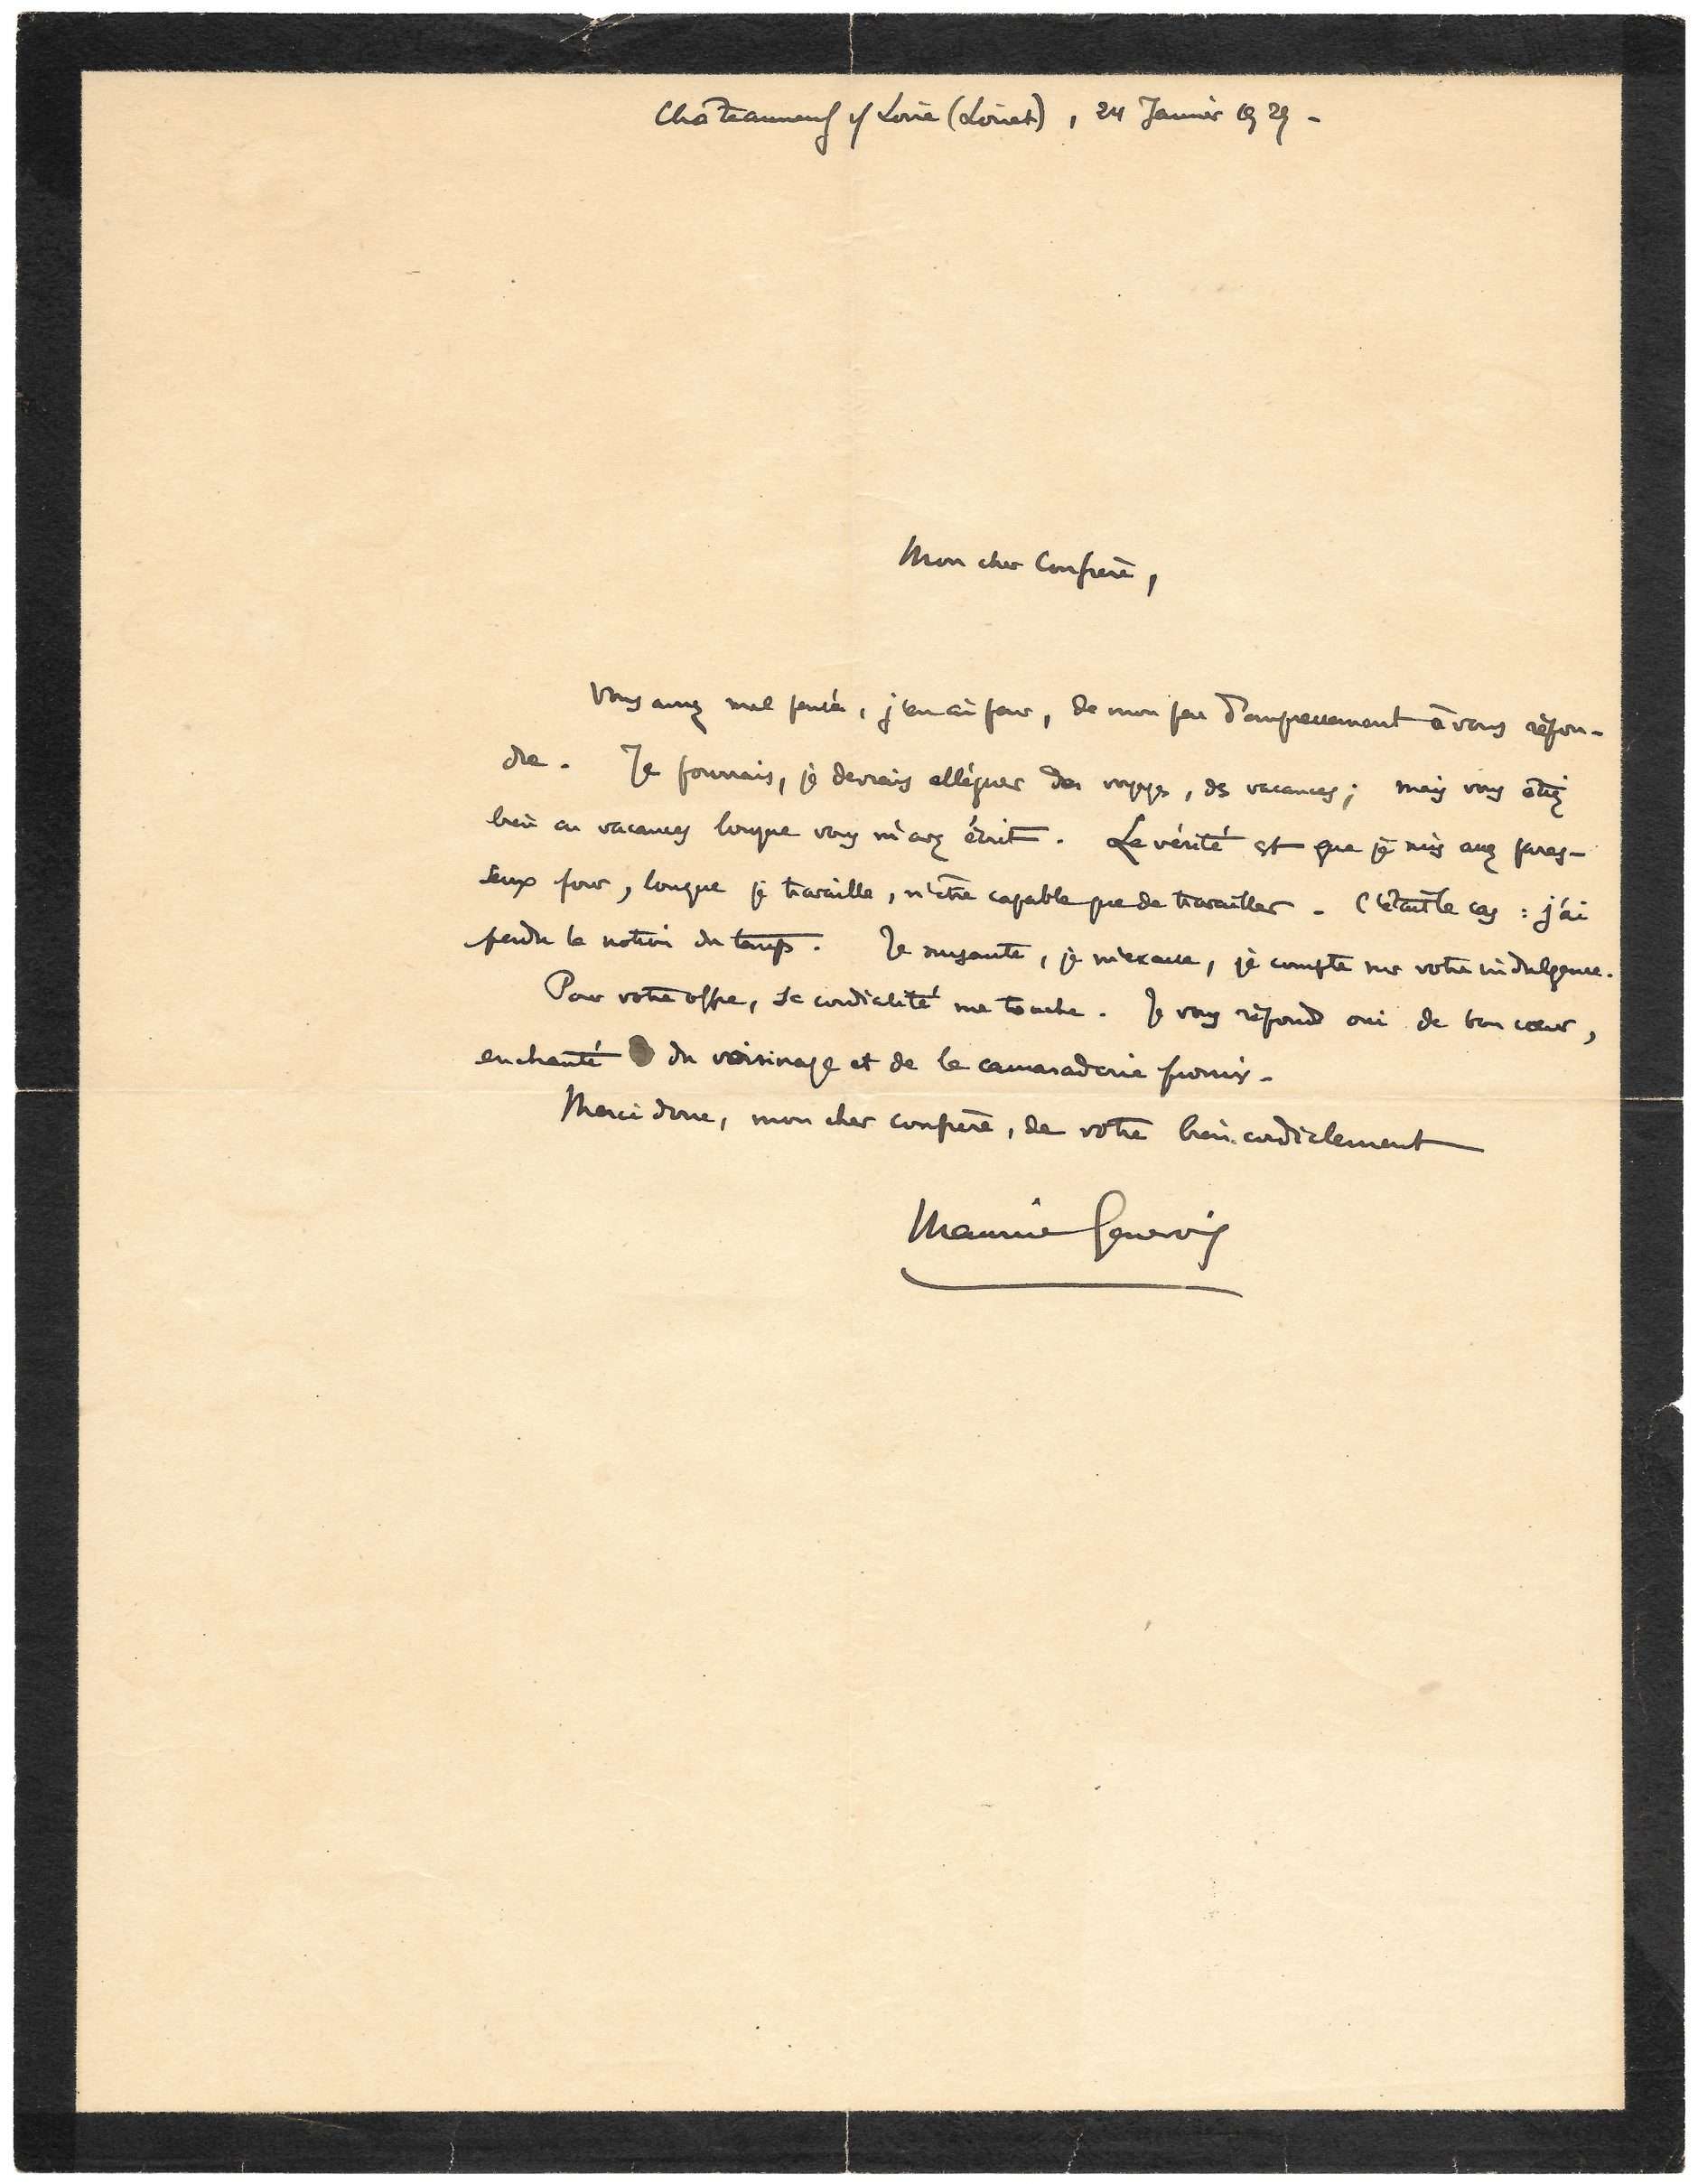 Châteauneuf s/ Loire (Loiret), 24 Janvier 1929 -
Mon cher Confrère,
Vous aurez mal pensé, j'en ai peur, de mon peu d'empressement à vous répon-
dre. Je pourrais, je devrais alléguer des voyages, des vacances ; mais vous étiez
bien en vacances lorsque vous m'avez écrit. La vérité est que je suis assez pares-
seux pour, lorsque je travaille, n'être capable que de travailler. C'était le cas : j'ai
perdu la notion du temps. Je m'excuse, je compte sur votre indulgence.
Pour votre offre, sa cordialité me touche. Je vous réponds oui de bon cœur,
enchanté du voisinage et de la camaraderie promis.
Merci donc, mon cher confrère, de votre bien cordialement
Maurice Genevoix